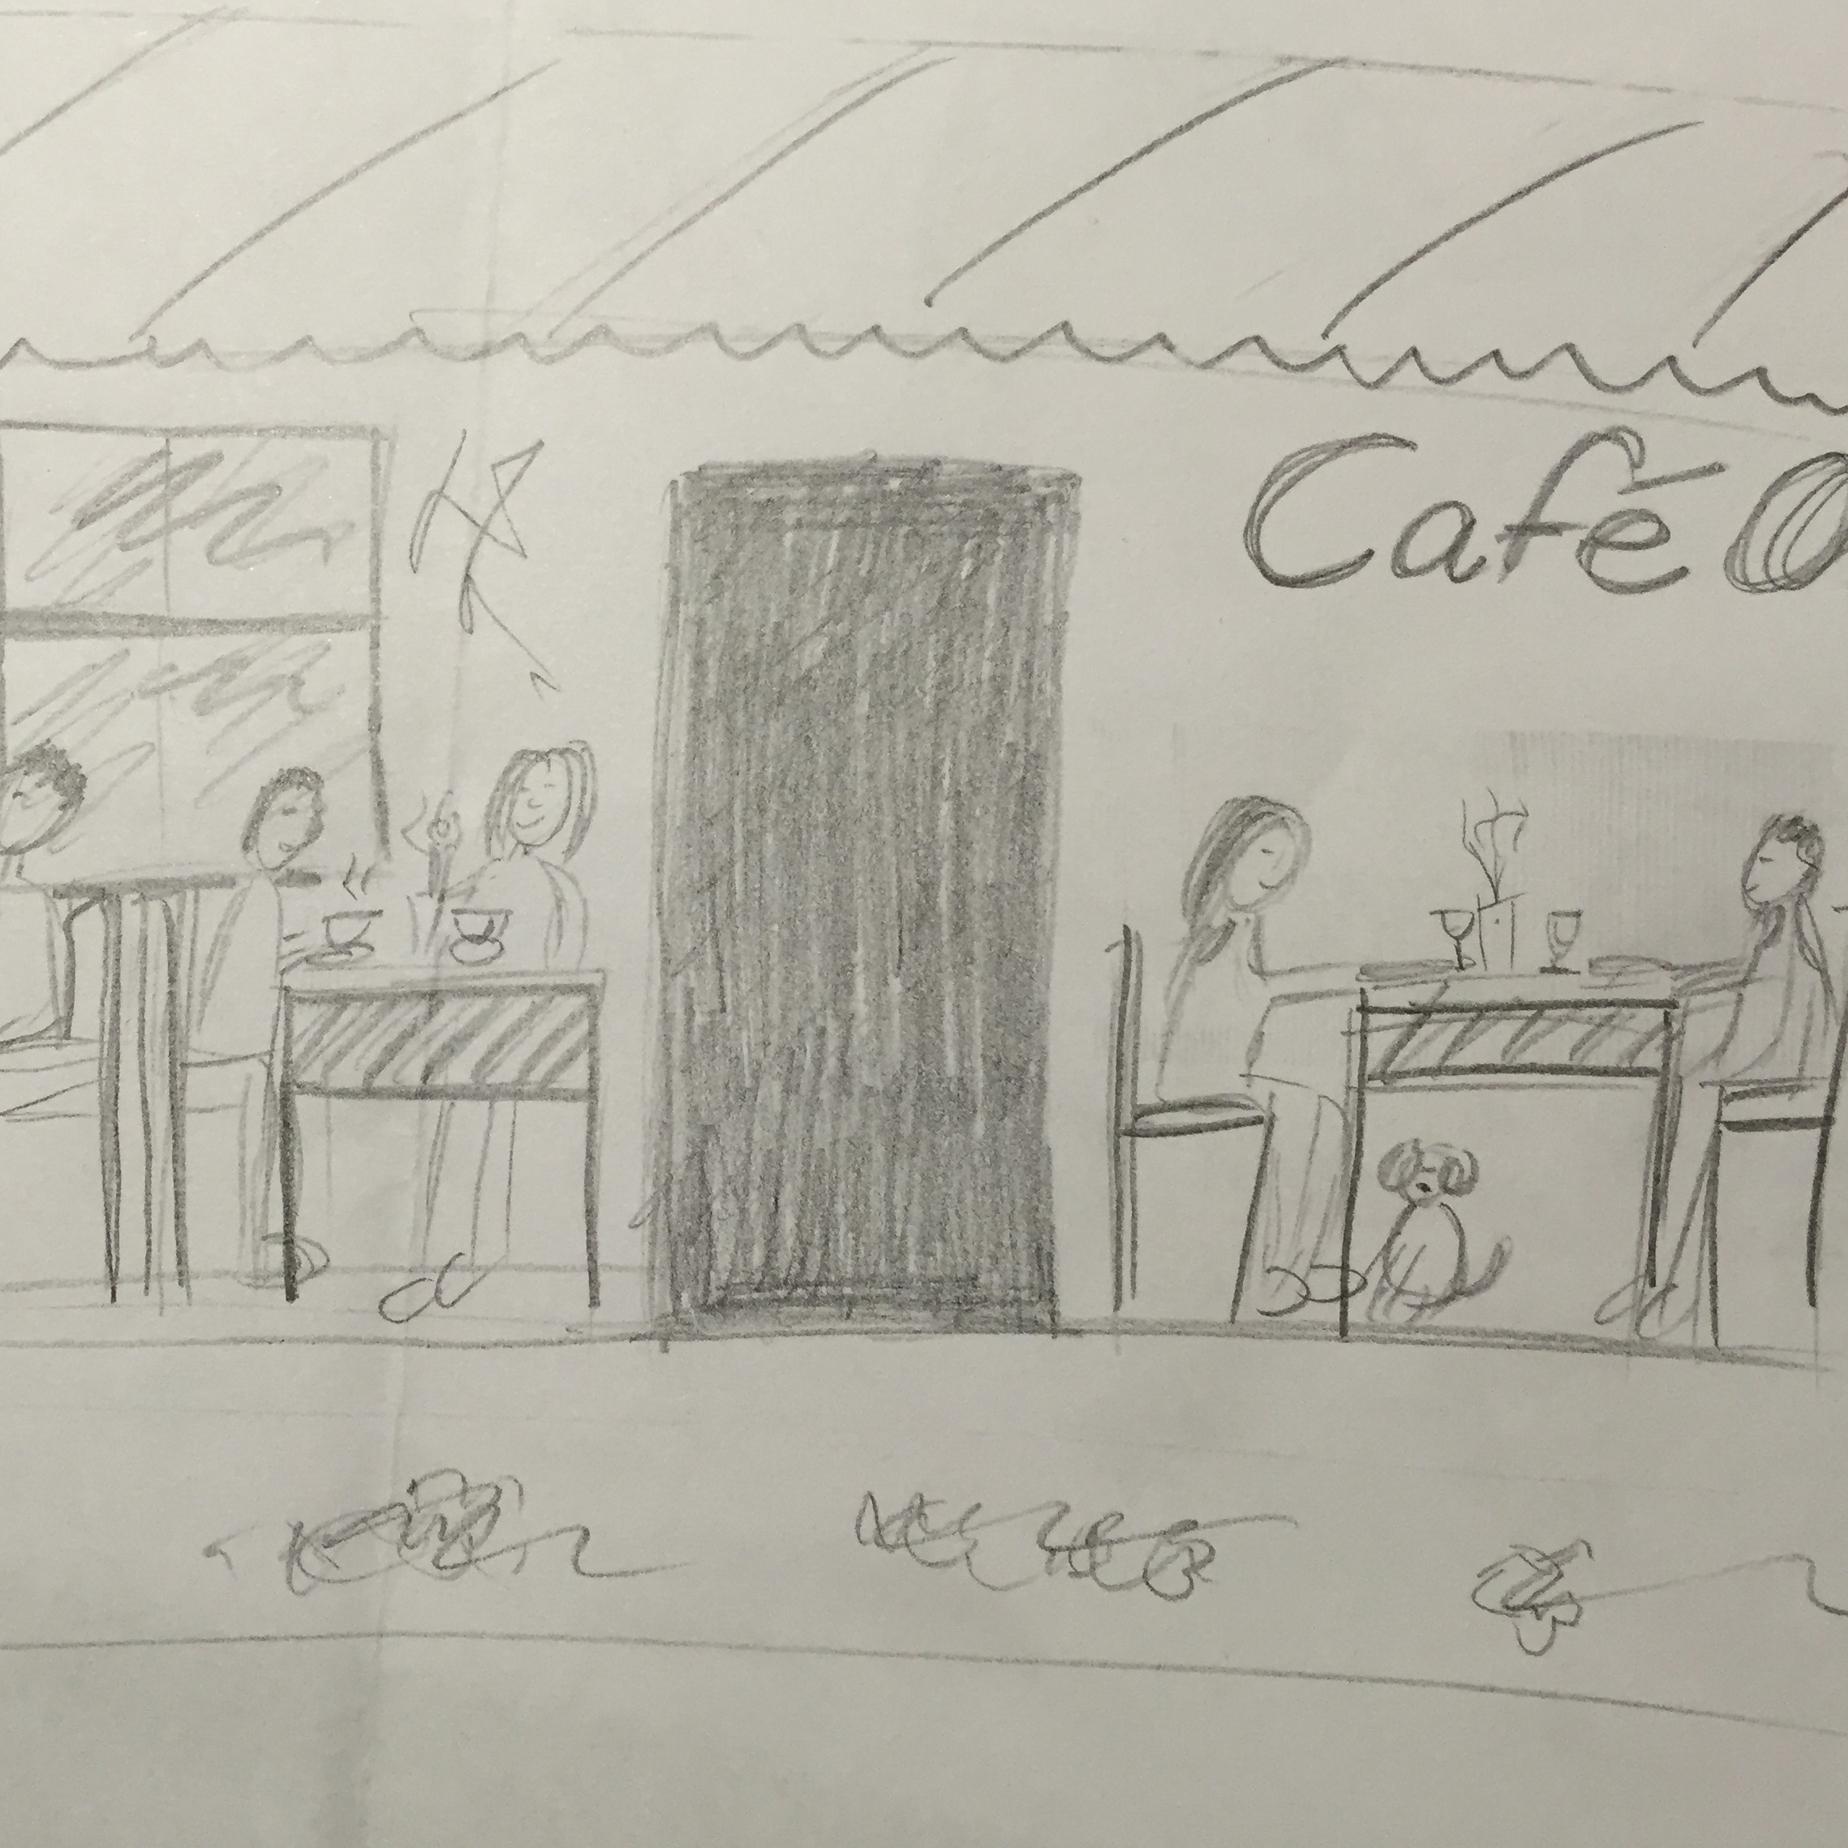 Café O